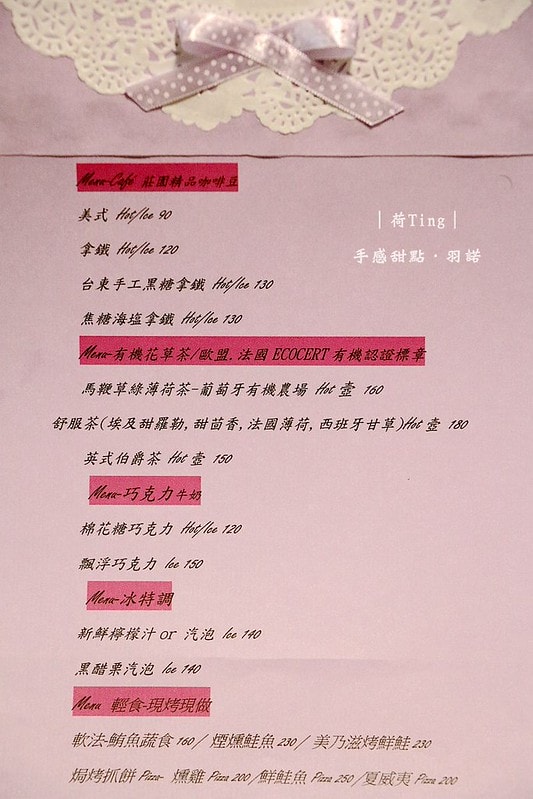 Menu-Café 莊園精品咖啡豆
美式 Hot/Ice 90
|荷Ting|
拿鐵 Hot/Ice 120
手感甜點．羽諾
台東手工黑糖拿鐵 Hot/Ice 130
焦糖海塩拿鐵 Hot/Ice 130
Menu-有機花草茶/歐盟.法國ECOCERT有機認證標章
馬鞭草綠薄荷茶-葡萄牙有機農場 Hot 壺 160
舒服茶(埃及甜羅勒,甜茴香,法國薄荷,西班牙甘草)Hot 壺 180
英式伯爵茶 Hot 壺 150
Menu-巧克力牛奶
棉花糖巧克力 Hot/Ice 120
飄浮巧克力 Ice 150
Menu-冰特調
新鮮檸檬汁 or 汽泡 Ice 140
黑醋栗汽泡 Ice 140
Menu 輕食-現烤現做
軟法-鮪魚蔬食 160/ 煙燻鮭魚 230/ 美乃滋烤鮮鮭 230
焗烤抓餅 Pizza- 燻雞 Pizza 200 /鮮鮭魚 Pizza 250 /夏威夷 Pizza 200